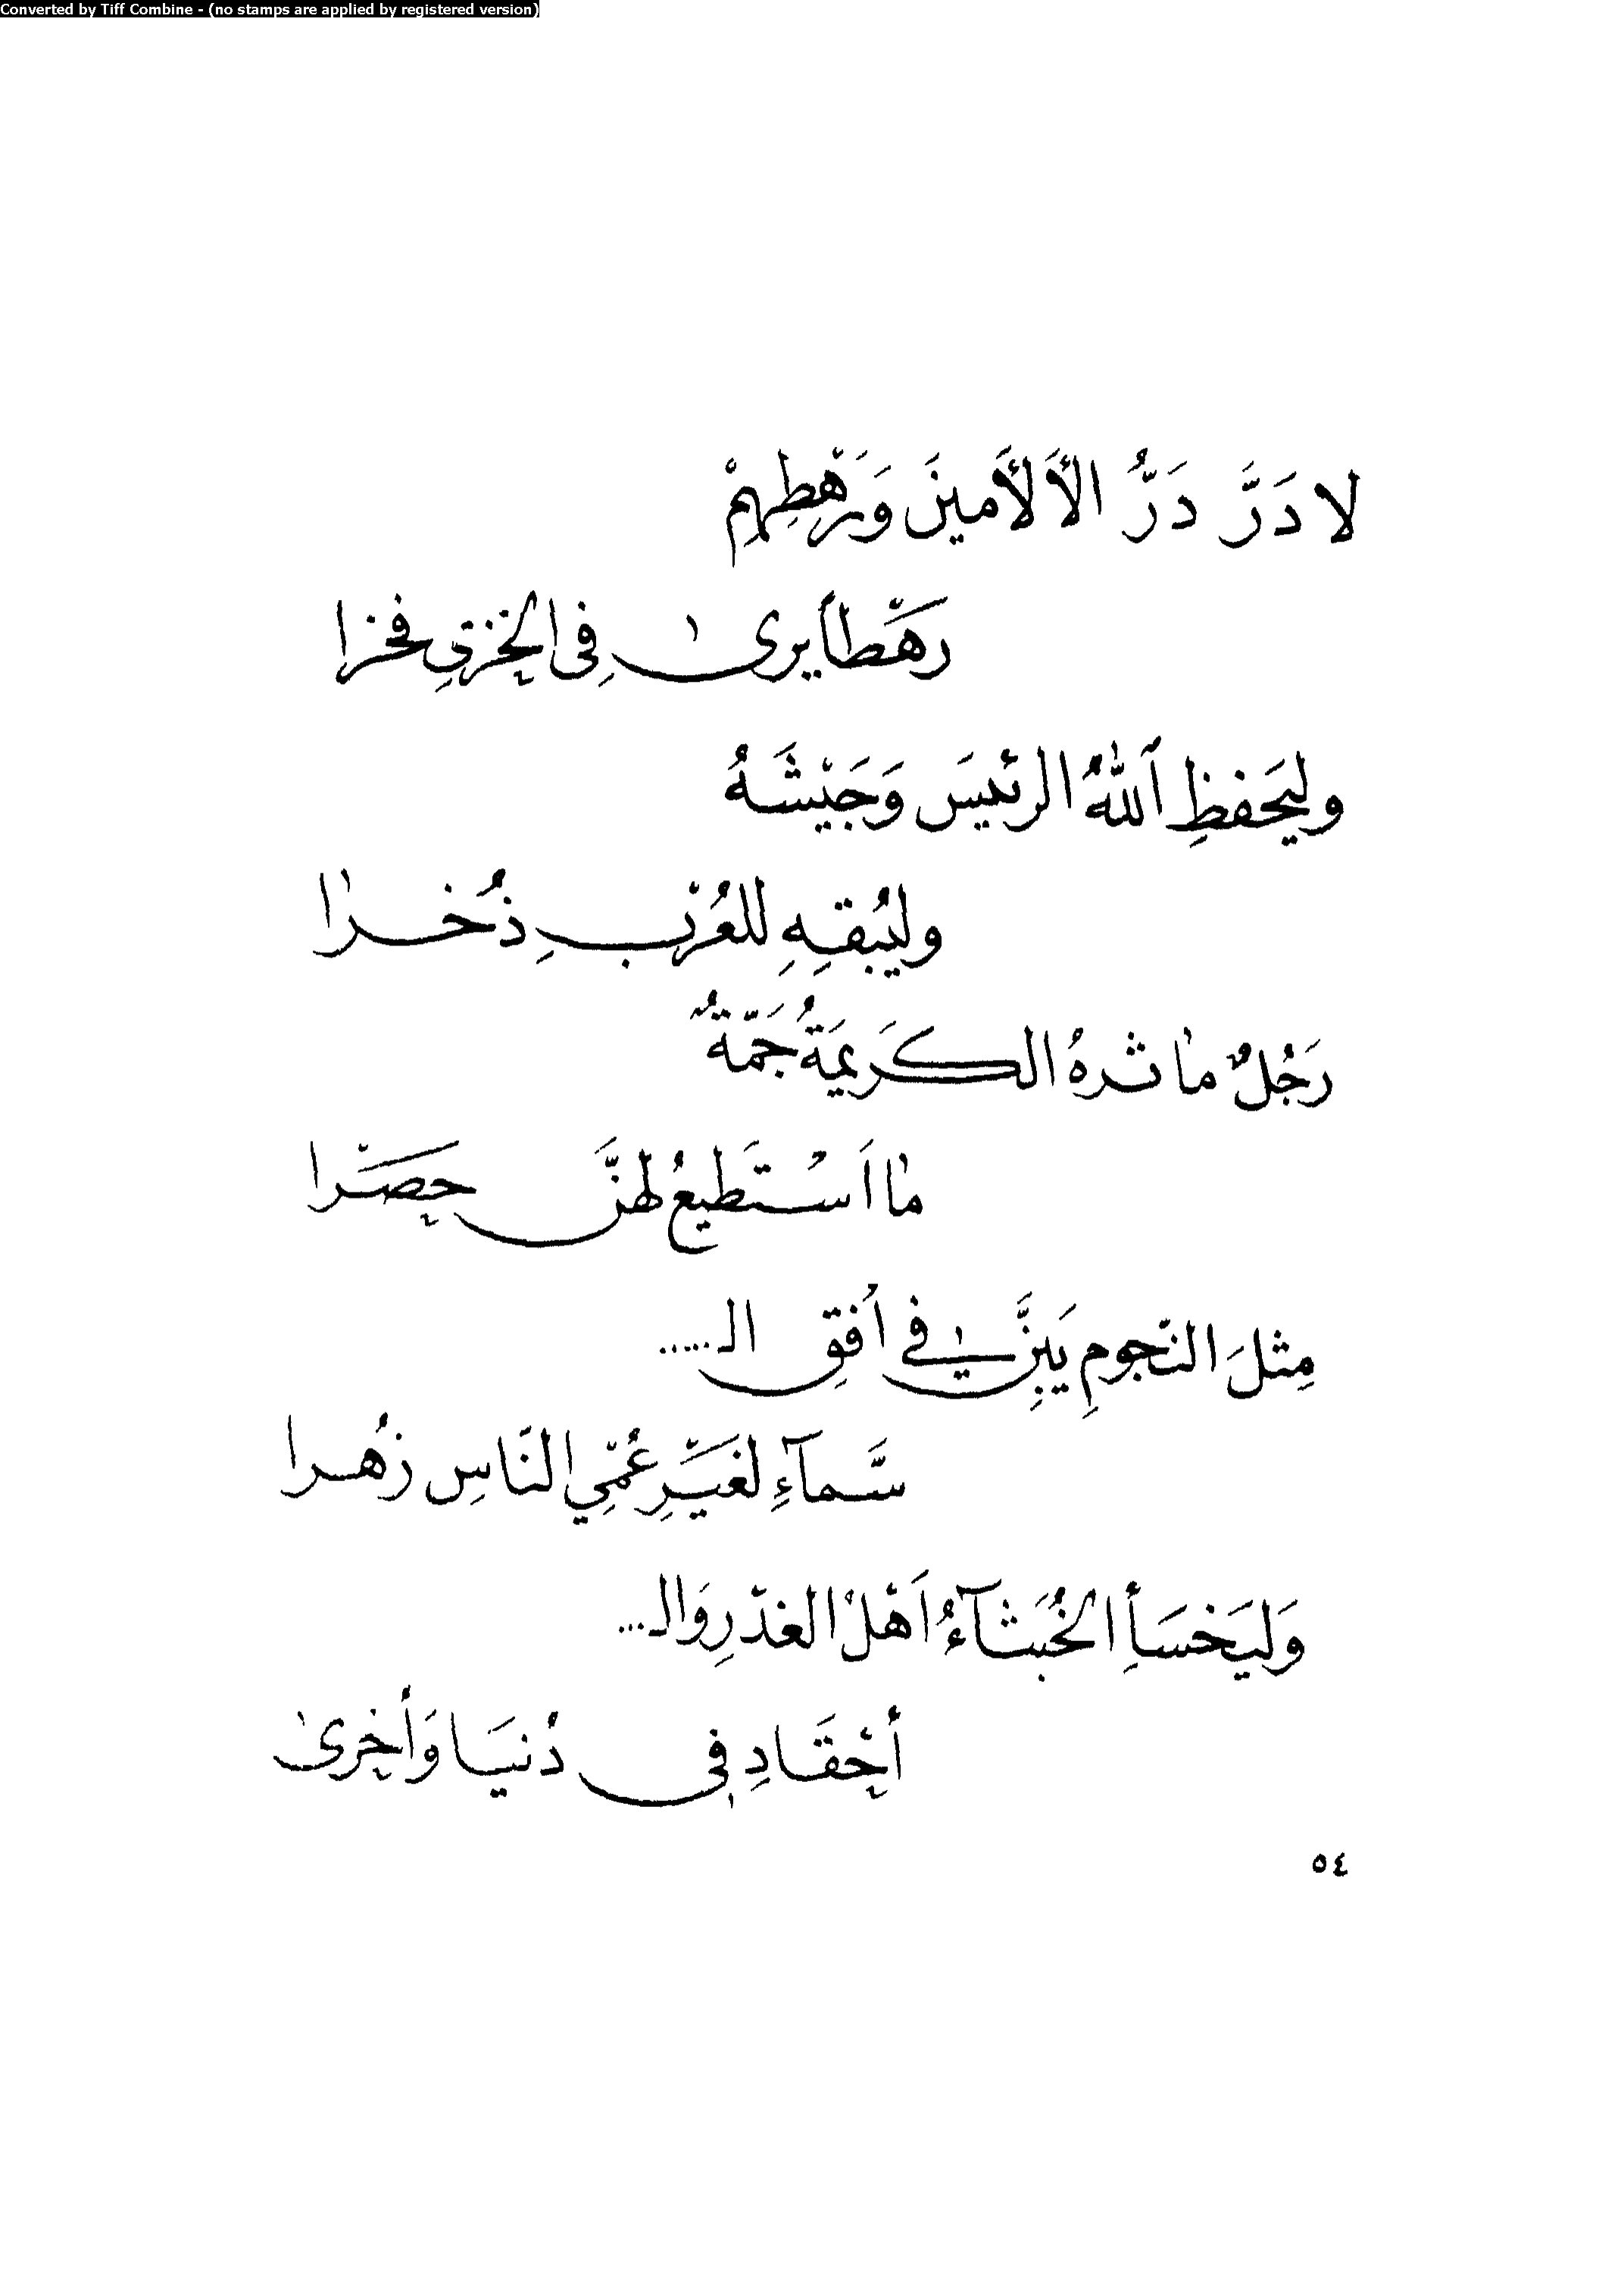 Converted by Tiff Combine - (no stamps are applied by registered version)
لا دَرَّ دَرُّ الأَلأَمينَ وَرَهْطِهِمْ
رهْطاً يرى في الخزيِ فخرا
وليَحفظِ ٱللّٰهُ الرئيسَ وَجَيْشَهُ
وليُبقهِ للعُرْبِ ذُخرا
رَجُلٌ مآثرهُ الكَريمَةُ جَمّةٌ
ما اَسْتَطيعُ لهنَّ حصْرا
مِثلَ النّجومِ يَبِنَّ في اُفقِ الـ.....
سَّمآءِ لغَيْرِ عُمْيِ النّاسِ زُهرا
وَليَخسَأِ الخُبَثآءُ اَهْلُ الغدْرِ وَالـ...
أحْقَادِ في دُنيَا وَأخرى
٥٤